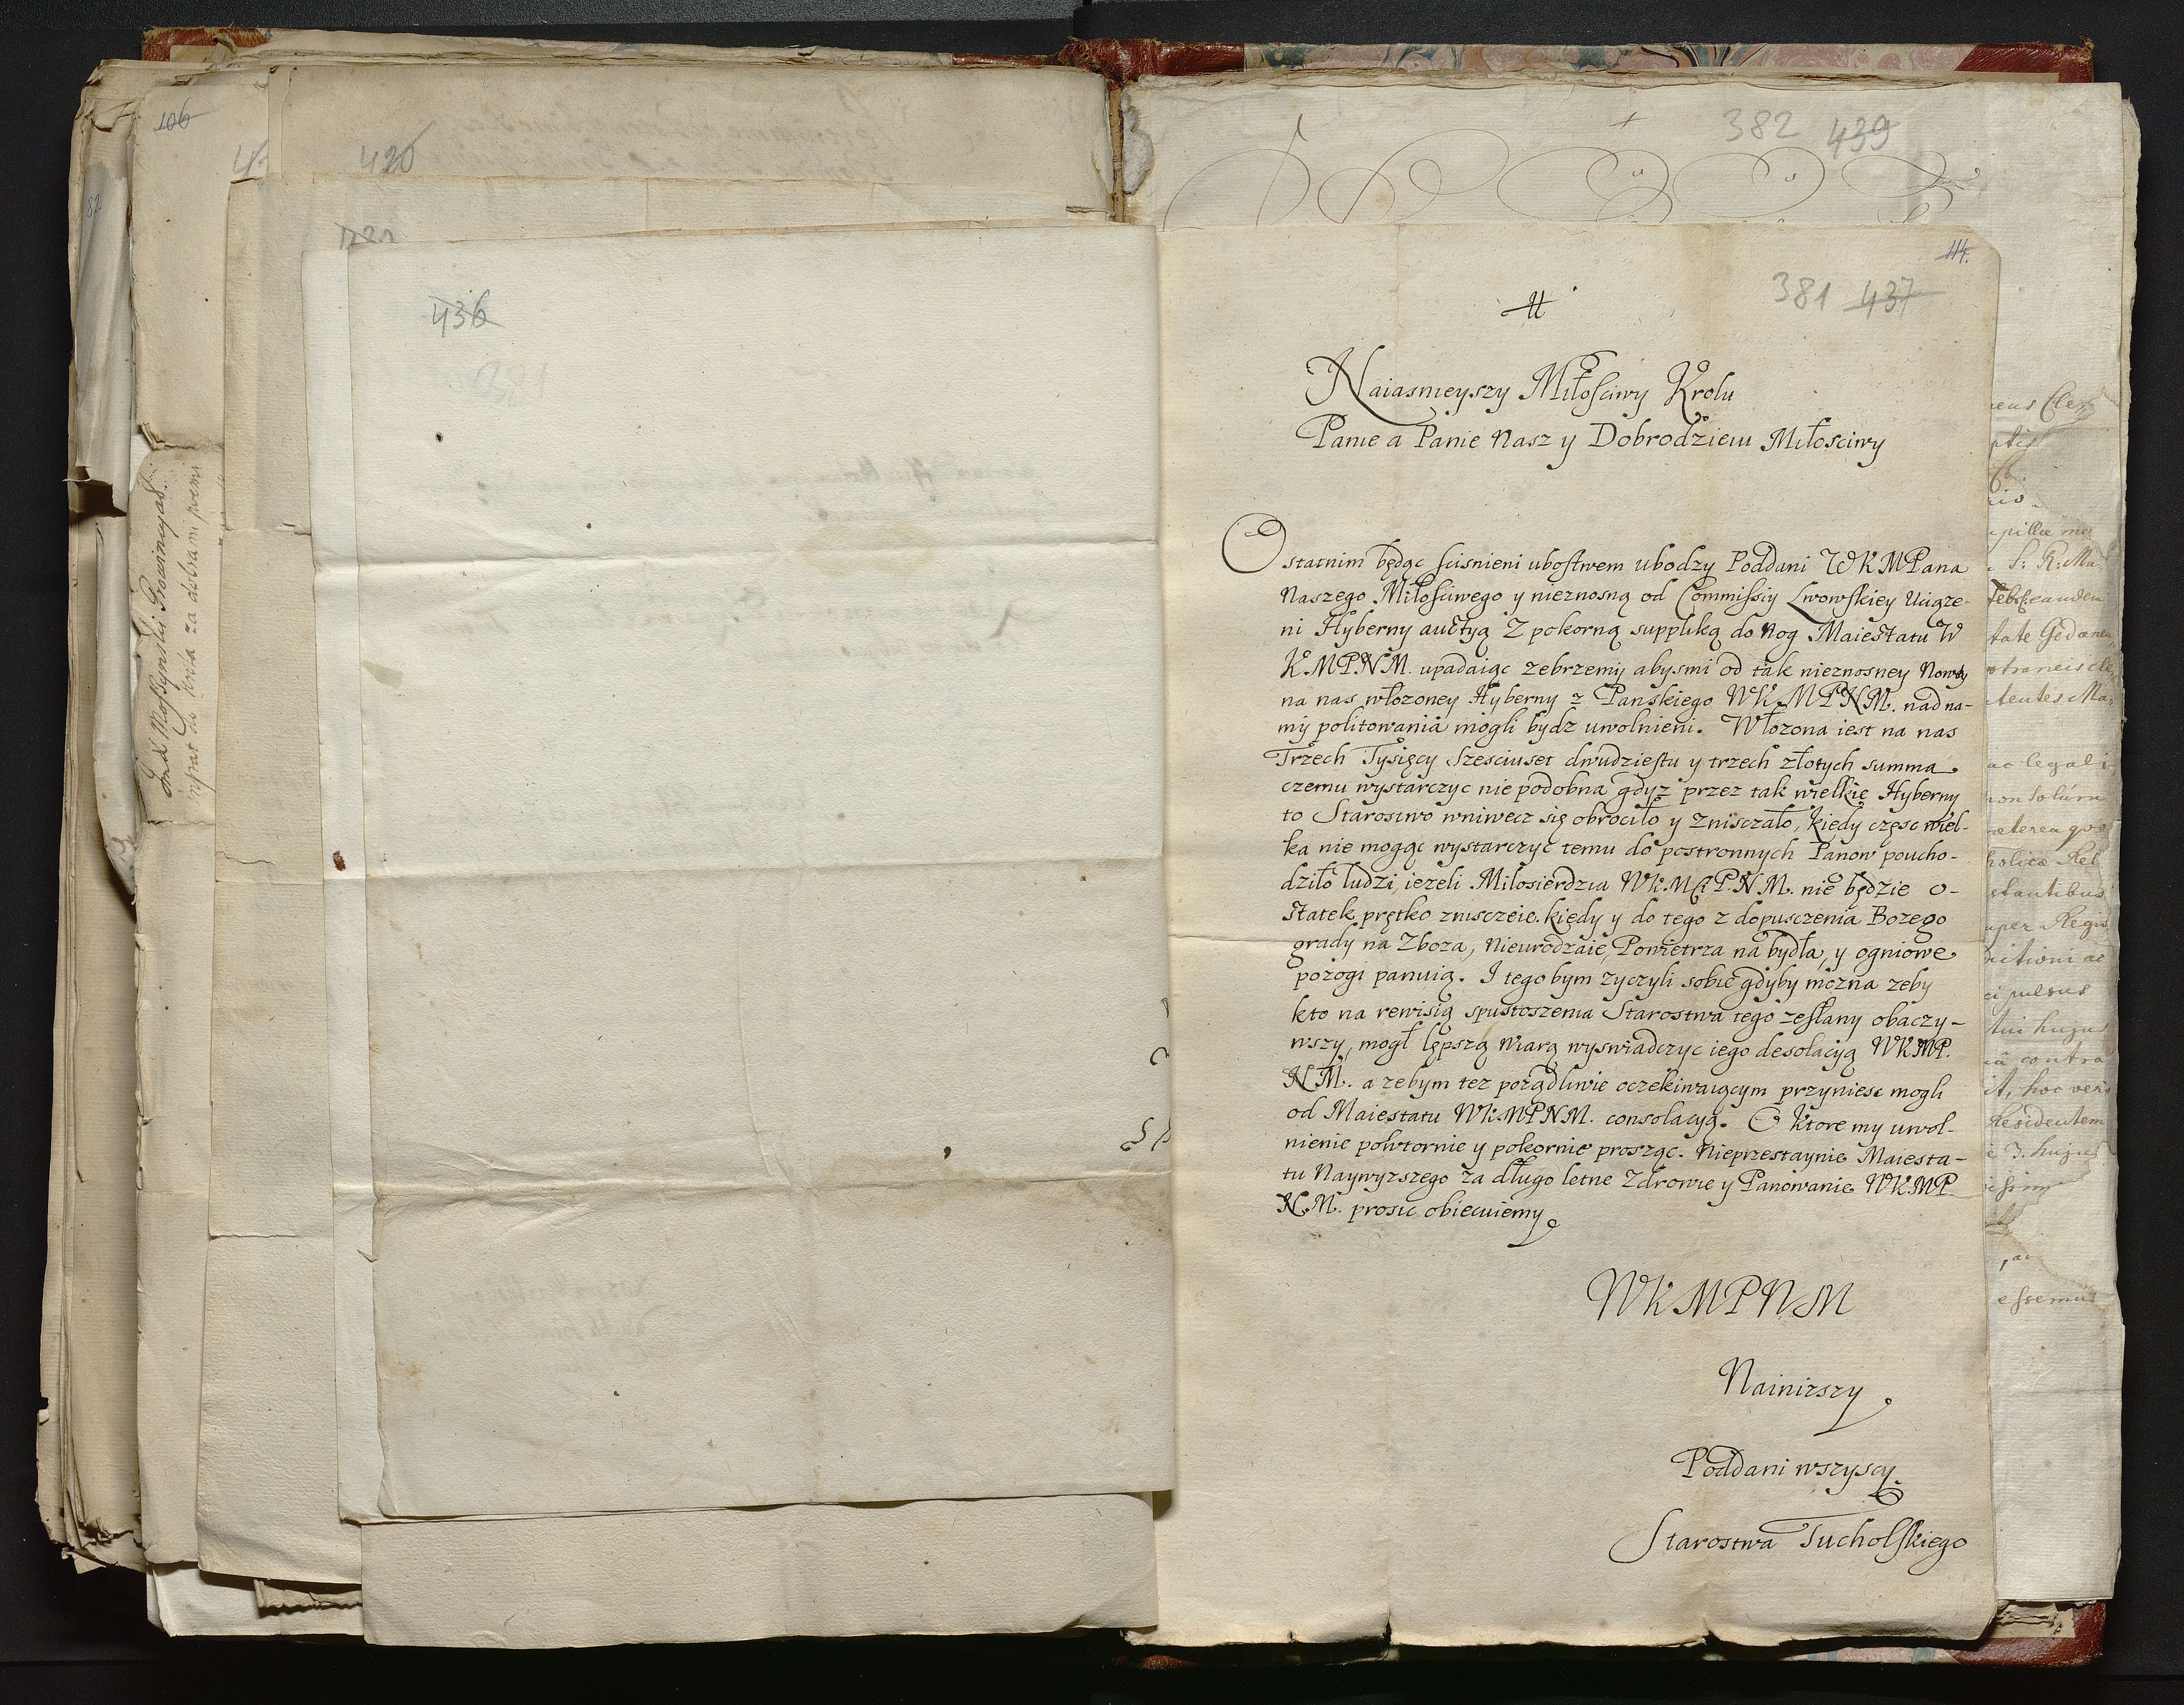 106
82
420
436
381
Naiasnieyszy Miłościwy Krolu
Panie a Panie Nasz y Dobrodzieiu Miłosciwy
Ostatnim będąc scisnieni ubostwem ubodzy Poddani WKMPana
Naszego Miłosciwego y nieznosną od Commissiy Lwowskiey Uciąze-
ni Hyberny auctyą Z pokorną suppliką do Nog Maiestatu W
KMPNM. upadaiąc zebrzemy abysmi od tak nieznosney Nowey
na nas włozoney Hyberny z Panskiego WKMPNM. nad na-
my politowania mogli bydz uwolnieni. Włozona iest na nas
Trzech Tysięcy Szesciuset dwudziestu y trzech złotych summa
czemu wystarczyc nie podobna gdyz przez tak wielkie Hyberny
to Starostwo wniwecz się obrociło y znisczało, kiedy częsc wiel-
ka nie mogąc wystarczyc temu do postronnych Panow poucho-
dziło ludzi, iezeli Miłosierdzia WKMPNM. nie będzie o-
statek prętko znisczeie. kiedy y do tego z dopusczenia Bozego
grady na Zboza, Nieurodzaie, Powietrza na bydła, y ogniowe
pozogi panuią. I tego bym zyczyli sobie gdyby mozna zeby
kto na rewisią spustoszenia Starostwa tego zesłany obaczy-
wszy, mogł lępszą wiarą wyswiadczyc iego desolacyą WKMP.
NM. a zebym tez poządliwie oczekiwaiącym przyniesc mogli
od Maiestatu WKMPNM. consolacyą. O ktore my uwol-
nienie powtornie y pokornie prosząc. Nieprzestaynie Maiesta-
tu Naywyzszego za długo letne Zdrowie y Panowanie WKMP.
NM. prosic obiecuiemy
WKMPNM
Nainizszy
Poddani wszyscy
Starostwa Tucholskiego
114.
381 437
382 439